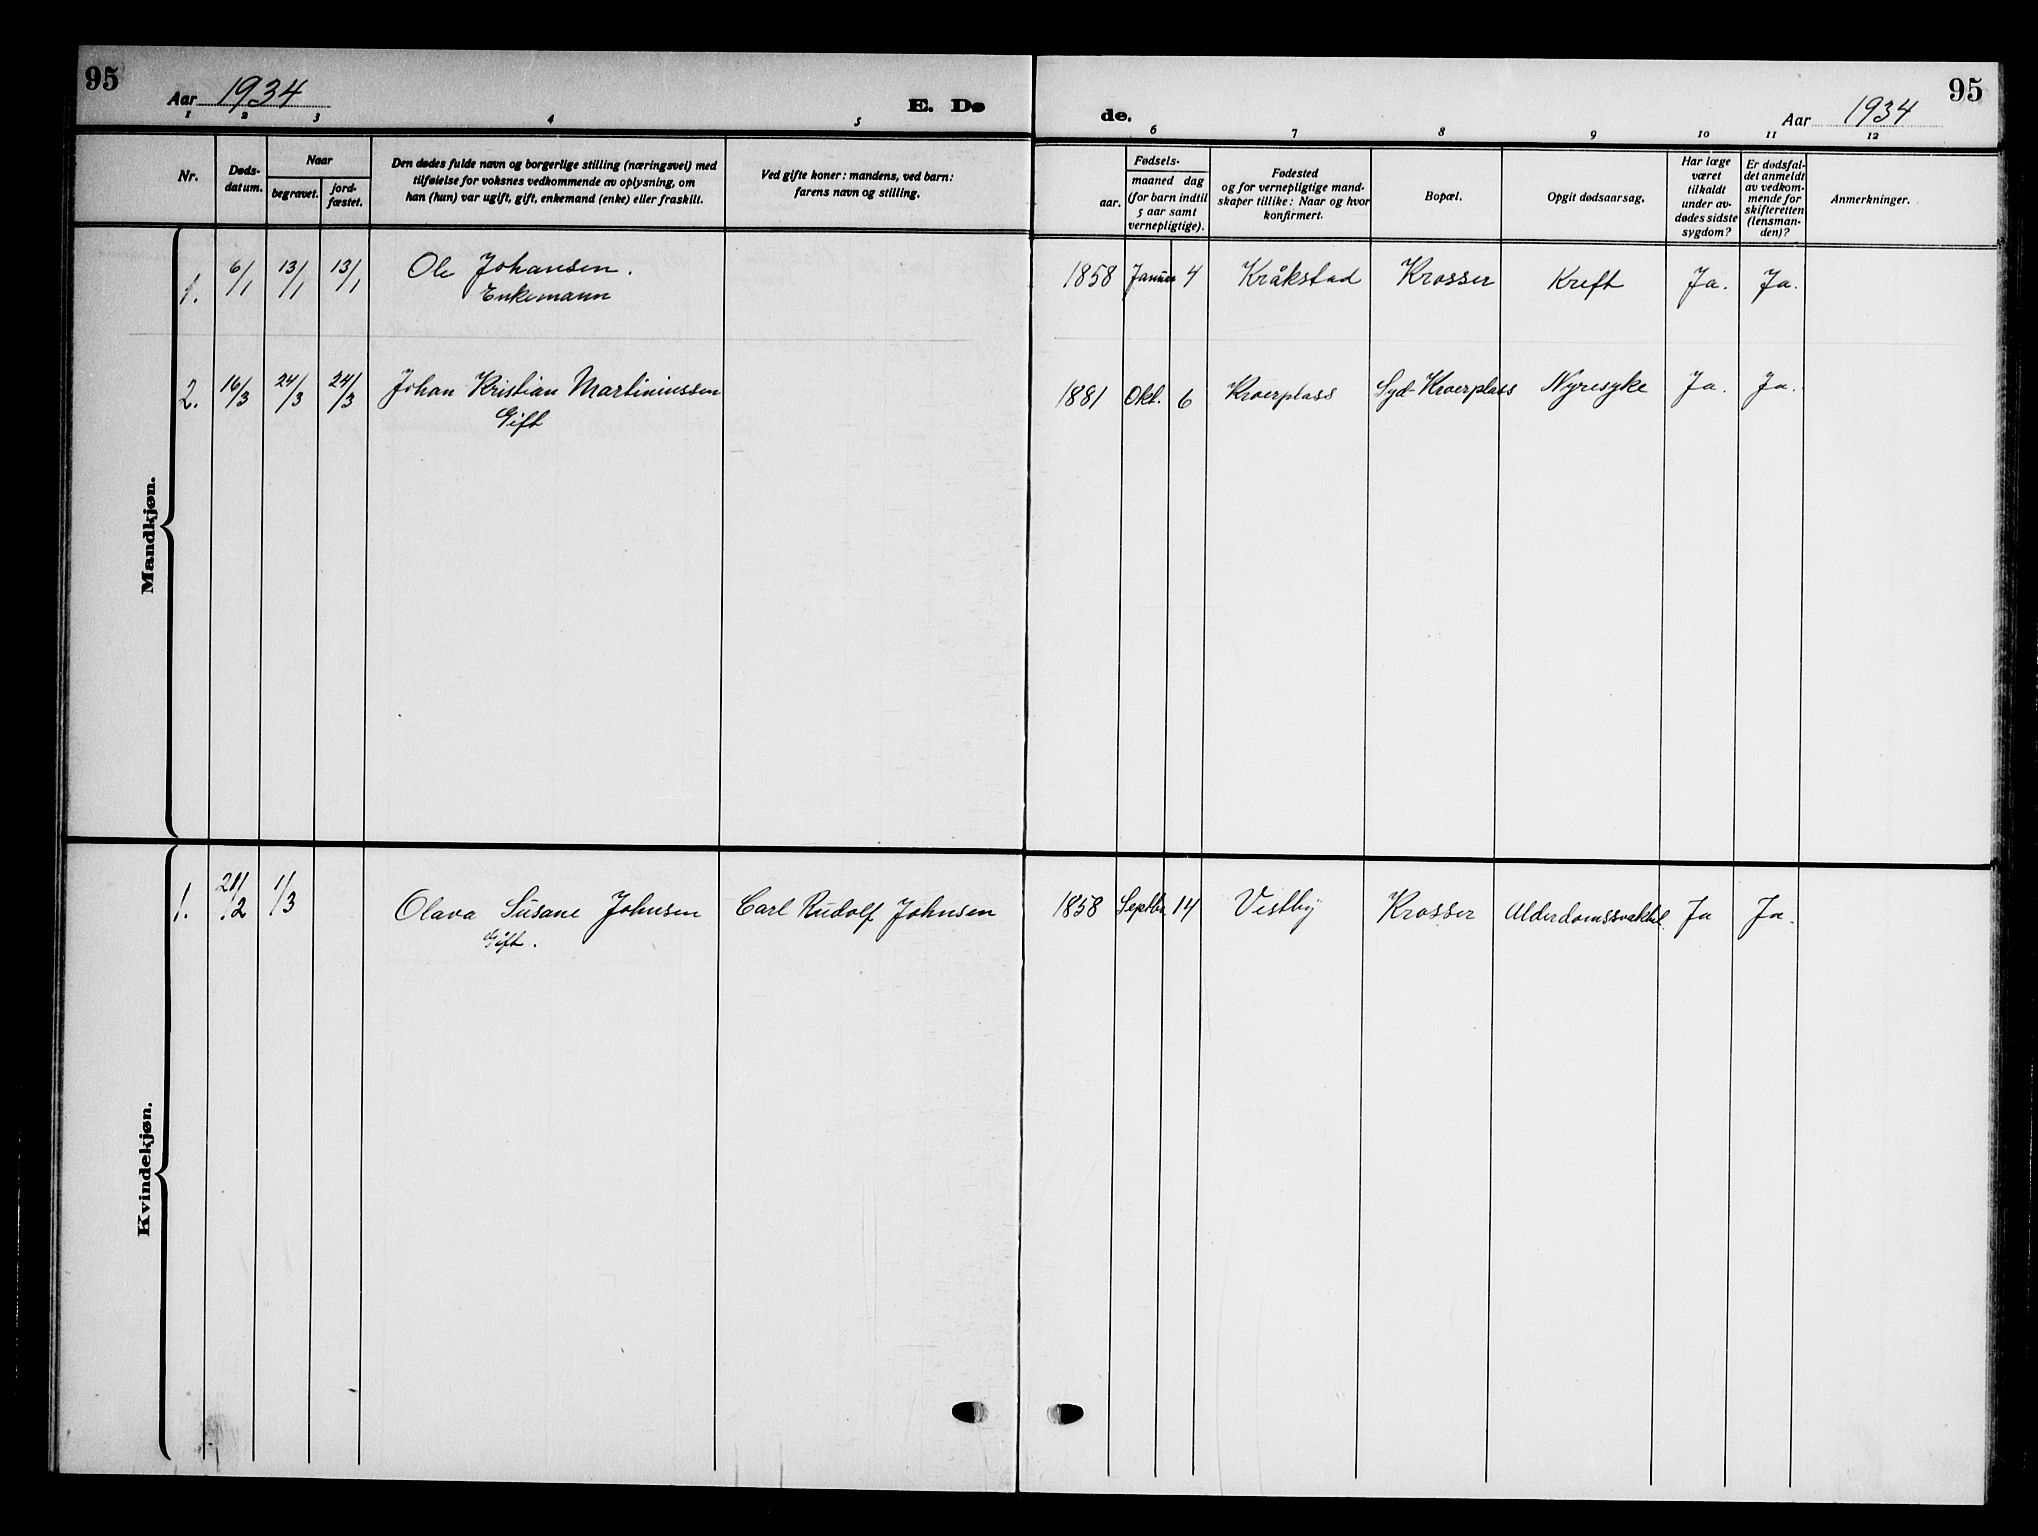 95
Aar 1934
E. Dø
de.
Aar 1934
95
1 2 3 4 5 6 7 8 9 10 11 12
Nr.
Døds-
datum.
Naar
begravet.
jord-
fæstet.
Den dødes fulde navn og borgerlige stilling (næringsvei) med
tilføielse for voksnes vedkommende av oplysning, om
han (hun) var ugift, gift, enkemand (enke) eller fraskilt.
Ved gifte koner: mandens, ved barn:
farens navn og stilling.
Fødsels-
aar.
maaned dag
(for barn indtil
5 aar samt
vernepligtige).
Fødested
og for vernepligtige mand-
skaper tillike: Naar og hvor
konfirmert.
Bopæl.
Opgit dødsaarsag.
Har læge
været
tilkaldt
under av-
dødes sidste
sygdom?
Er dødsfal-
det anmeldt
av vedkom-
mende for
skifteretten
(lensman-
den)?
Anmerkninger.
Mandkjøn.
1. 6/1 13/1 13/1 Ole Johansen. 1858 Januar 4 Kråkstad Krosser Kreft Ja. Ja.
Enkemann
2. 16/3 24/3 24/3 Johan Kristian Martiniussen 1881 Okt. 6 Kroerplass Syd-Kroerplass Nyresyke Ja. Ja.
Gift
Kvindekjøn.
1. 21/2 1/3 Olava Susane Johnsen Carl Rudolf Johnsen 1858 Septbr. 14 Vestby Krosser Ja Ja.
Gift.